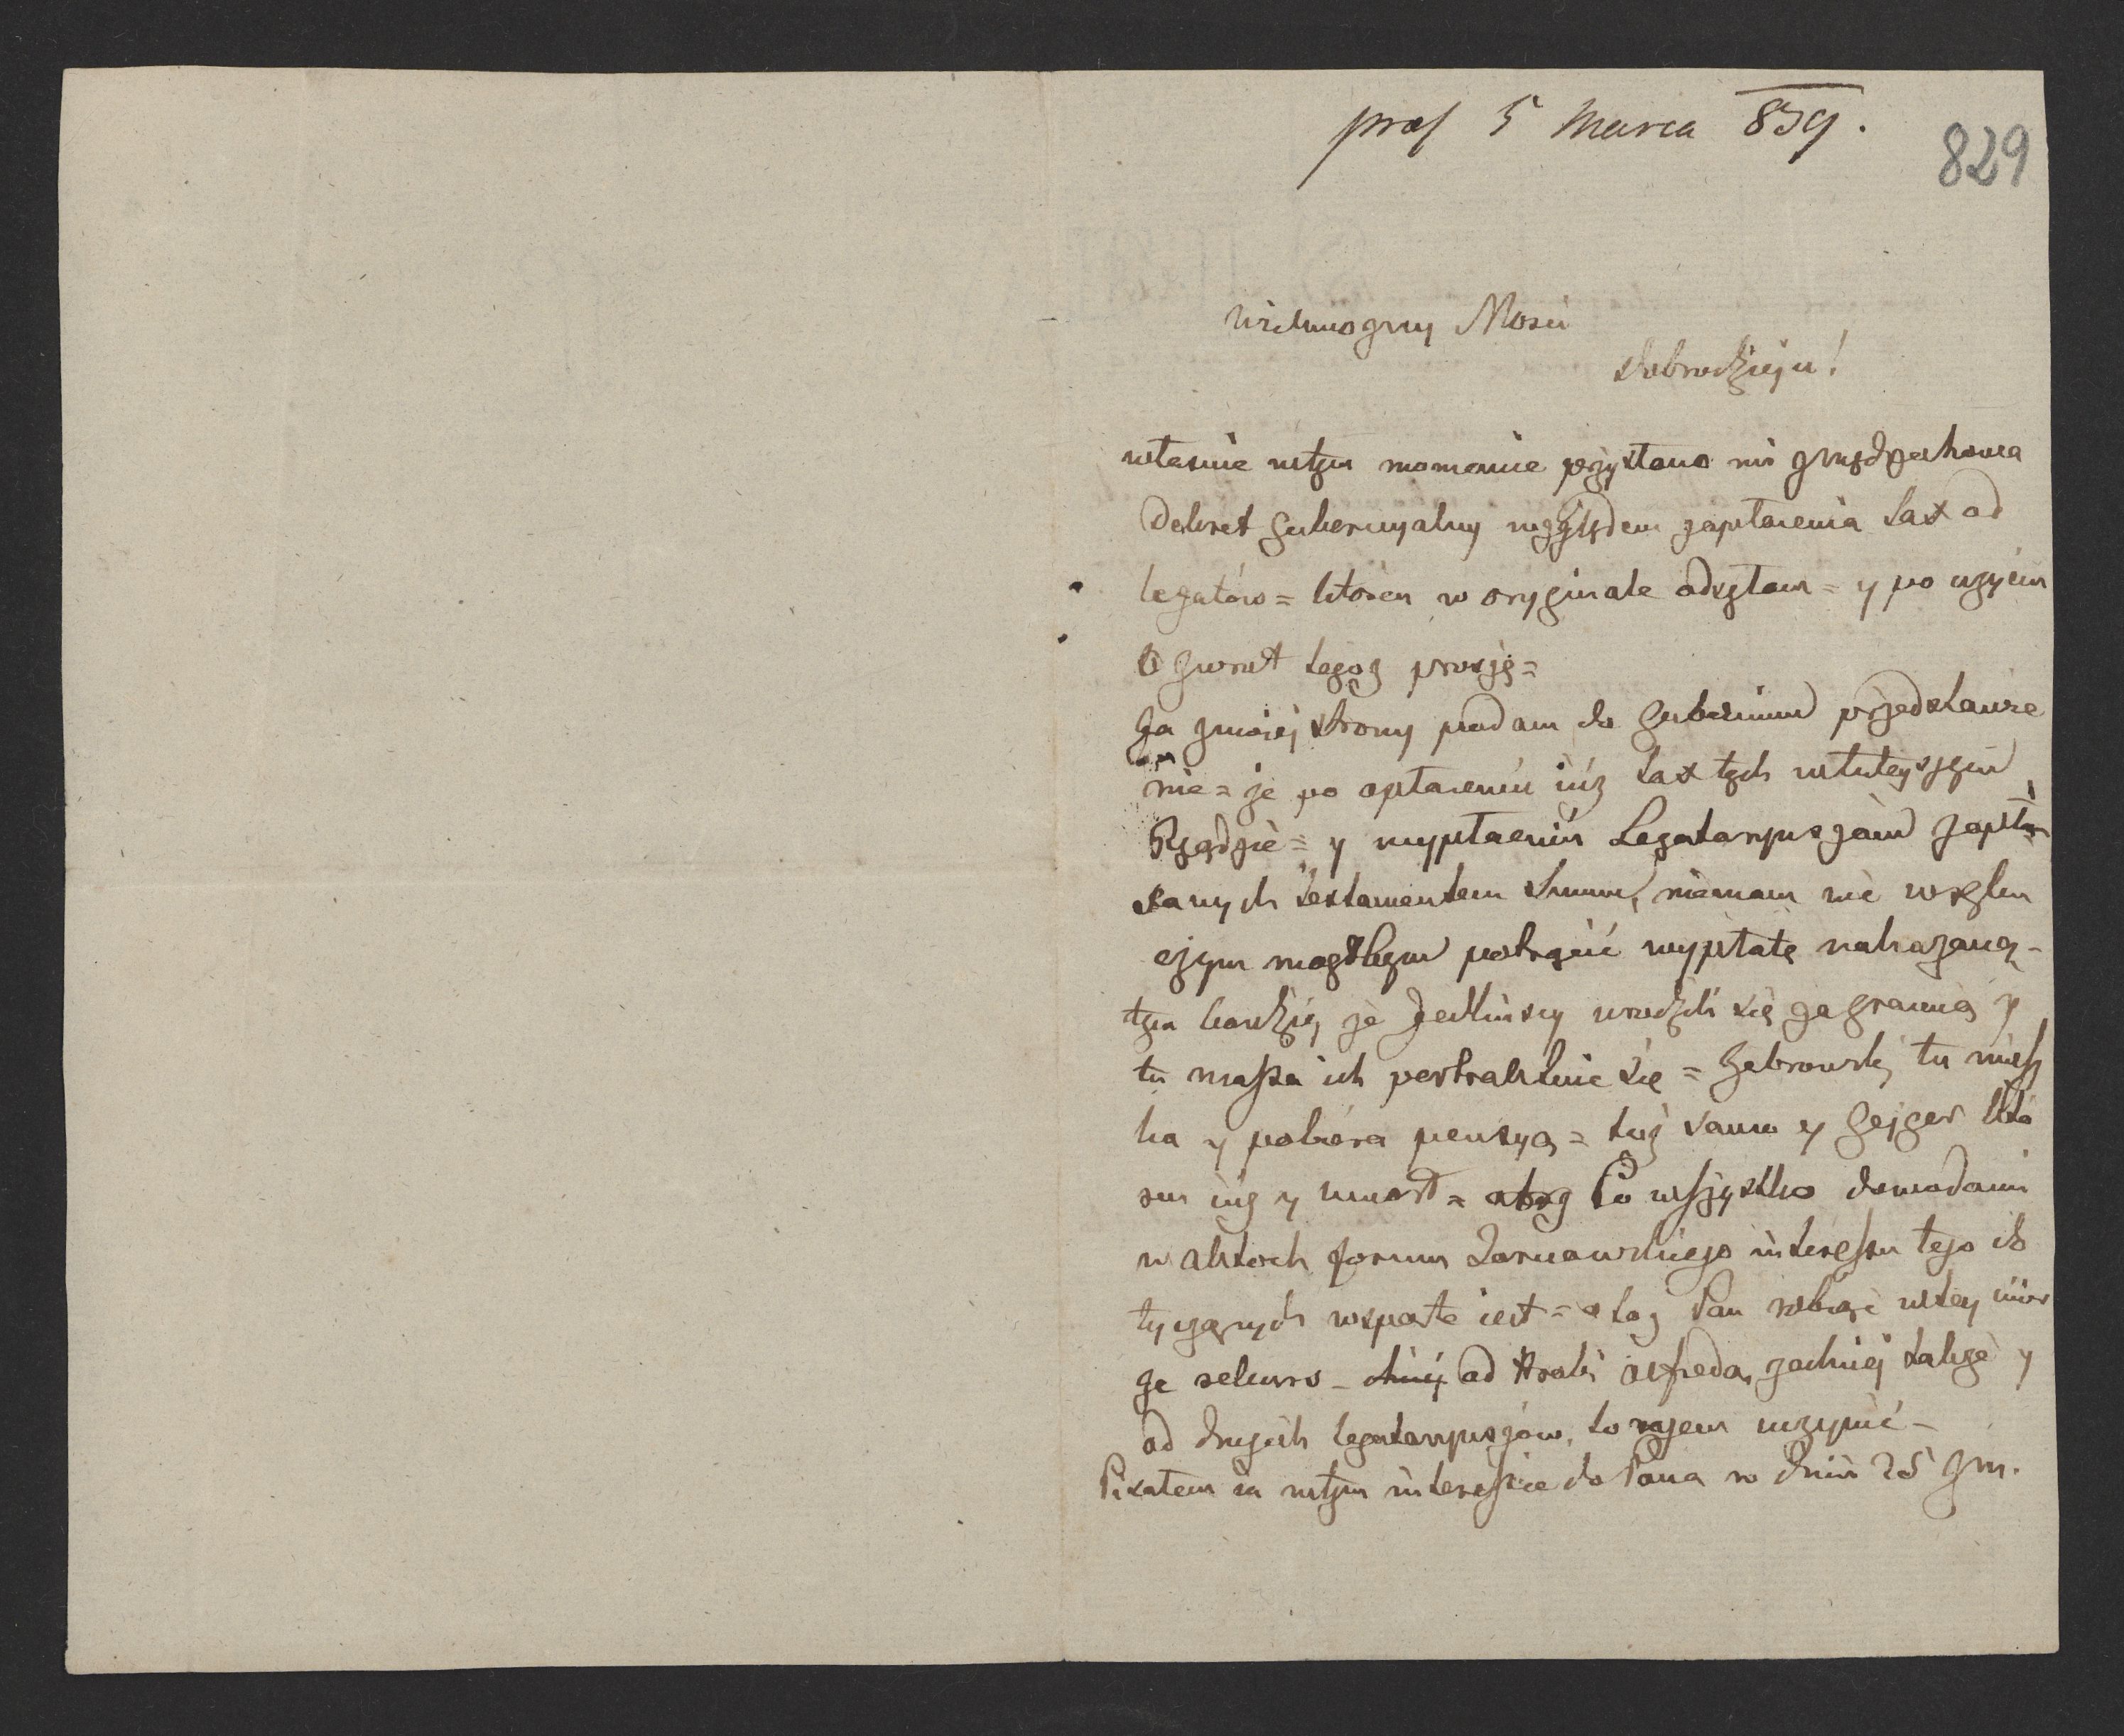 praes 5 Marca 839.
829
Wielmożny Mosci
Dobrodzieju!
własnie wtym momencie przysłano mi
Dekret gubernyalny względem zapłacenia tax od
legatów = któren w oryginale odsyłam = y po użyciu
O zwrot tegoż proszę =
Ja zmoiej strony podam do Gubernium przedstawie
nie = że po opłaceniu iuż tax tych wtuteyszym
Rządzie = y wypłaceniu Legataryuszom zapi
sanych testamentem Summ, niemam nic wsglen
czym mogłbym potrącić wypłatę nakazaną -
tym bardziej że Jedlinscy urodzili się za granicą y
tu massa ich pertraktuie się = Zebrowski tu miesz
ka y pobiera pensyą = tuż samo y Gejger któ
ren iuż y umarł = To wszystko dowodami
w aktach forum Tarnowskiego interessu tego do
tyczących wsparte iest = toż Pan robiąc wtey mier
ze rekurs - od Hrabi Alfreda, zechciej także y
od drugich legataryuszów, to razem uczynić -
Pisałem ia wtym interessie do Pana w dniu 25 zm.